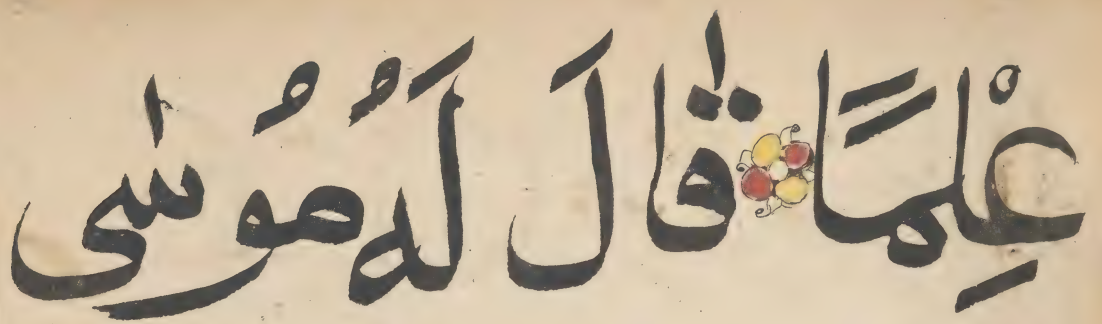 عِلْمًا قَالَ لَهُ مُوسٰى